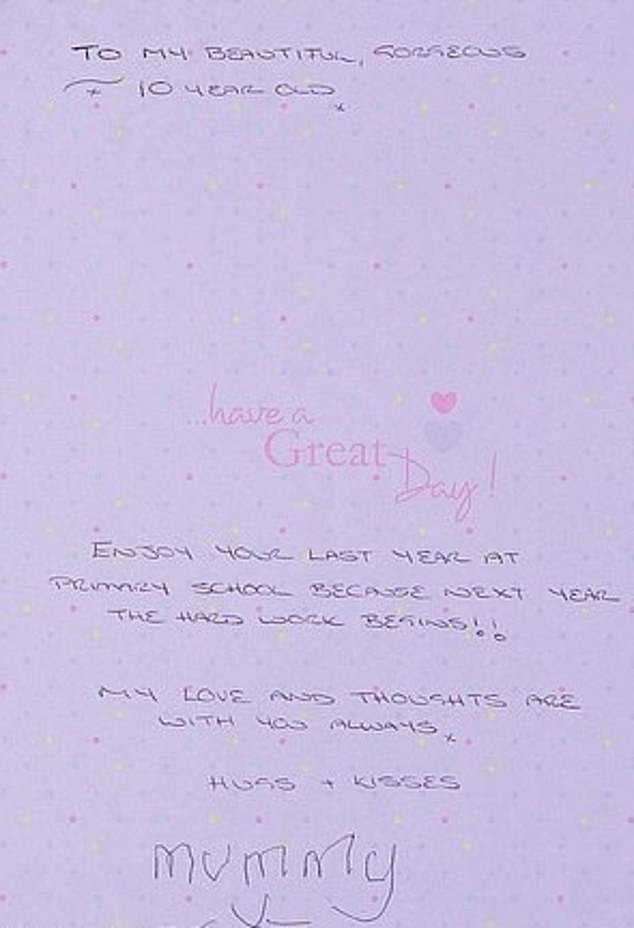 TO MY BEAUTIFUL, GORGEOUS
10 YEAR OLD x
...have a
Great
Day!
ENJOY YOUR LAST YEAR AT
PRIMARY SCHOOL BECAUSE NEXT YEAR
THE HARD WORK BEGINS!!
MY LOVE AND THOUGHTS ARE
WITH YOU ALWAYS x
HUGS + KISSES
MUMMY
x